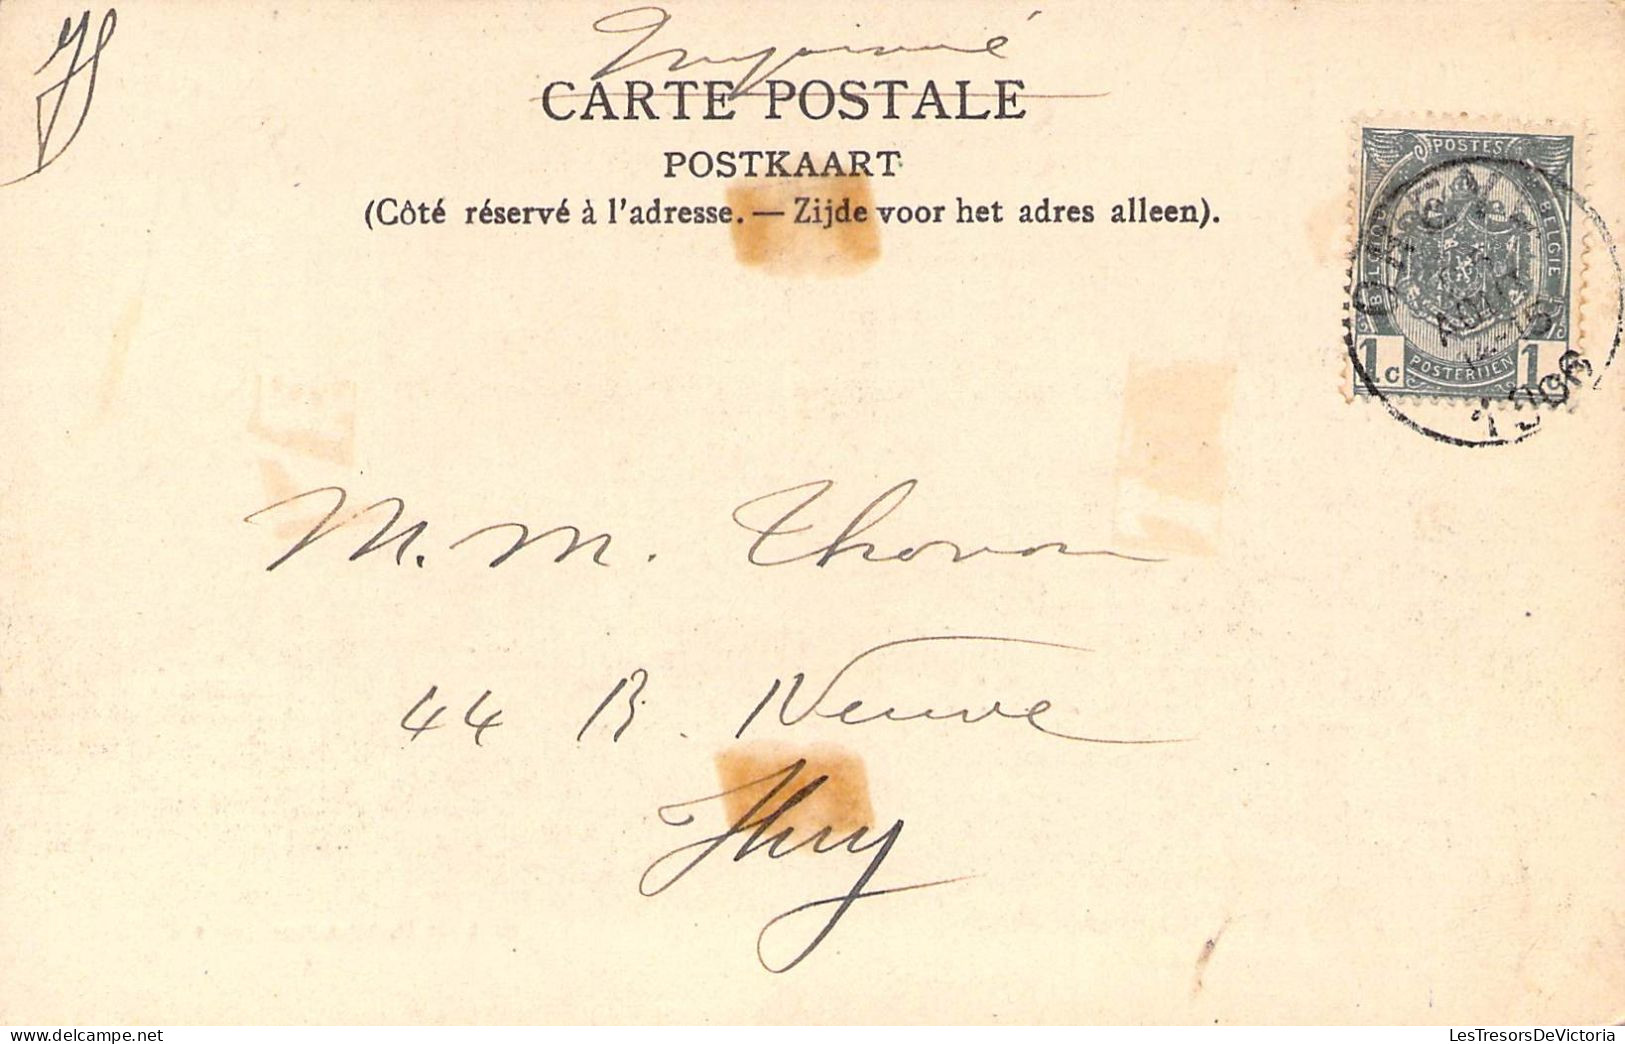 Imprimé
CARTE POSTALE
POSTKAART
(Côté réservé à l'adresse. — Zijde voor het adres alleen).
POSTES
BELGIQUE
BELGIË
POSTERIJEN
1c
1
AOUT
M. M. Thovon
44 R. Neuve
Huy
LesTresorsDeVictoria